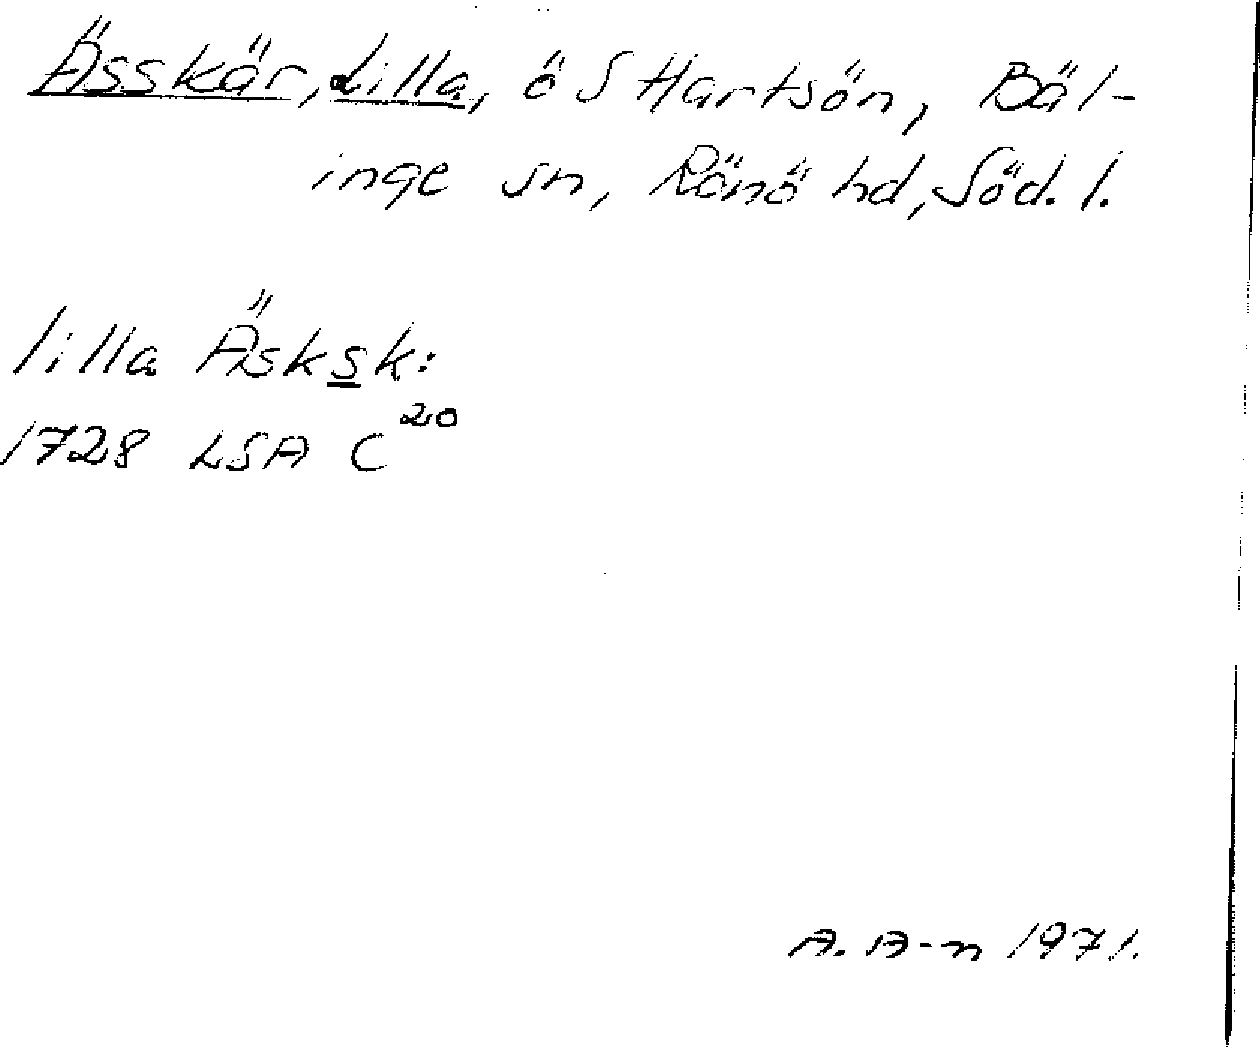 Ässkär, Lilla, ö S Hartsön, Bäl-
inge sn, Rönö hd, Söd. l.
lilla Äsksk:
1728 LSA C 20
A. A-n 1971.